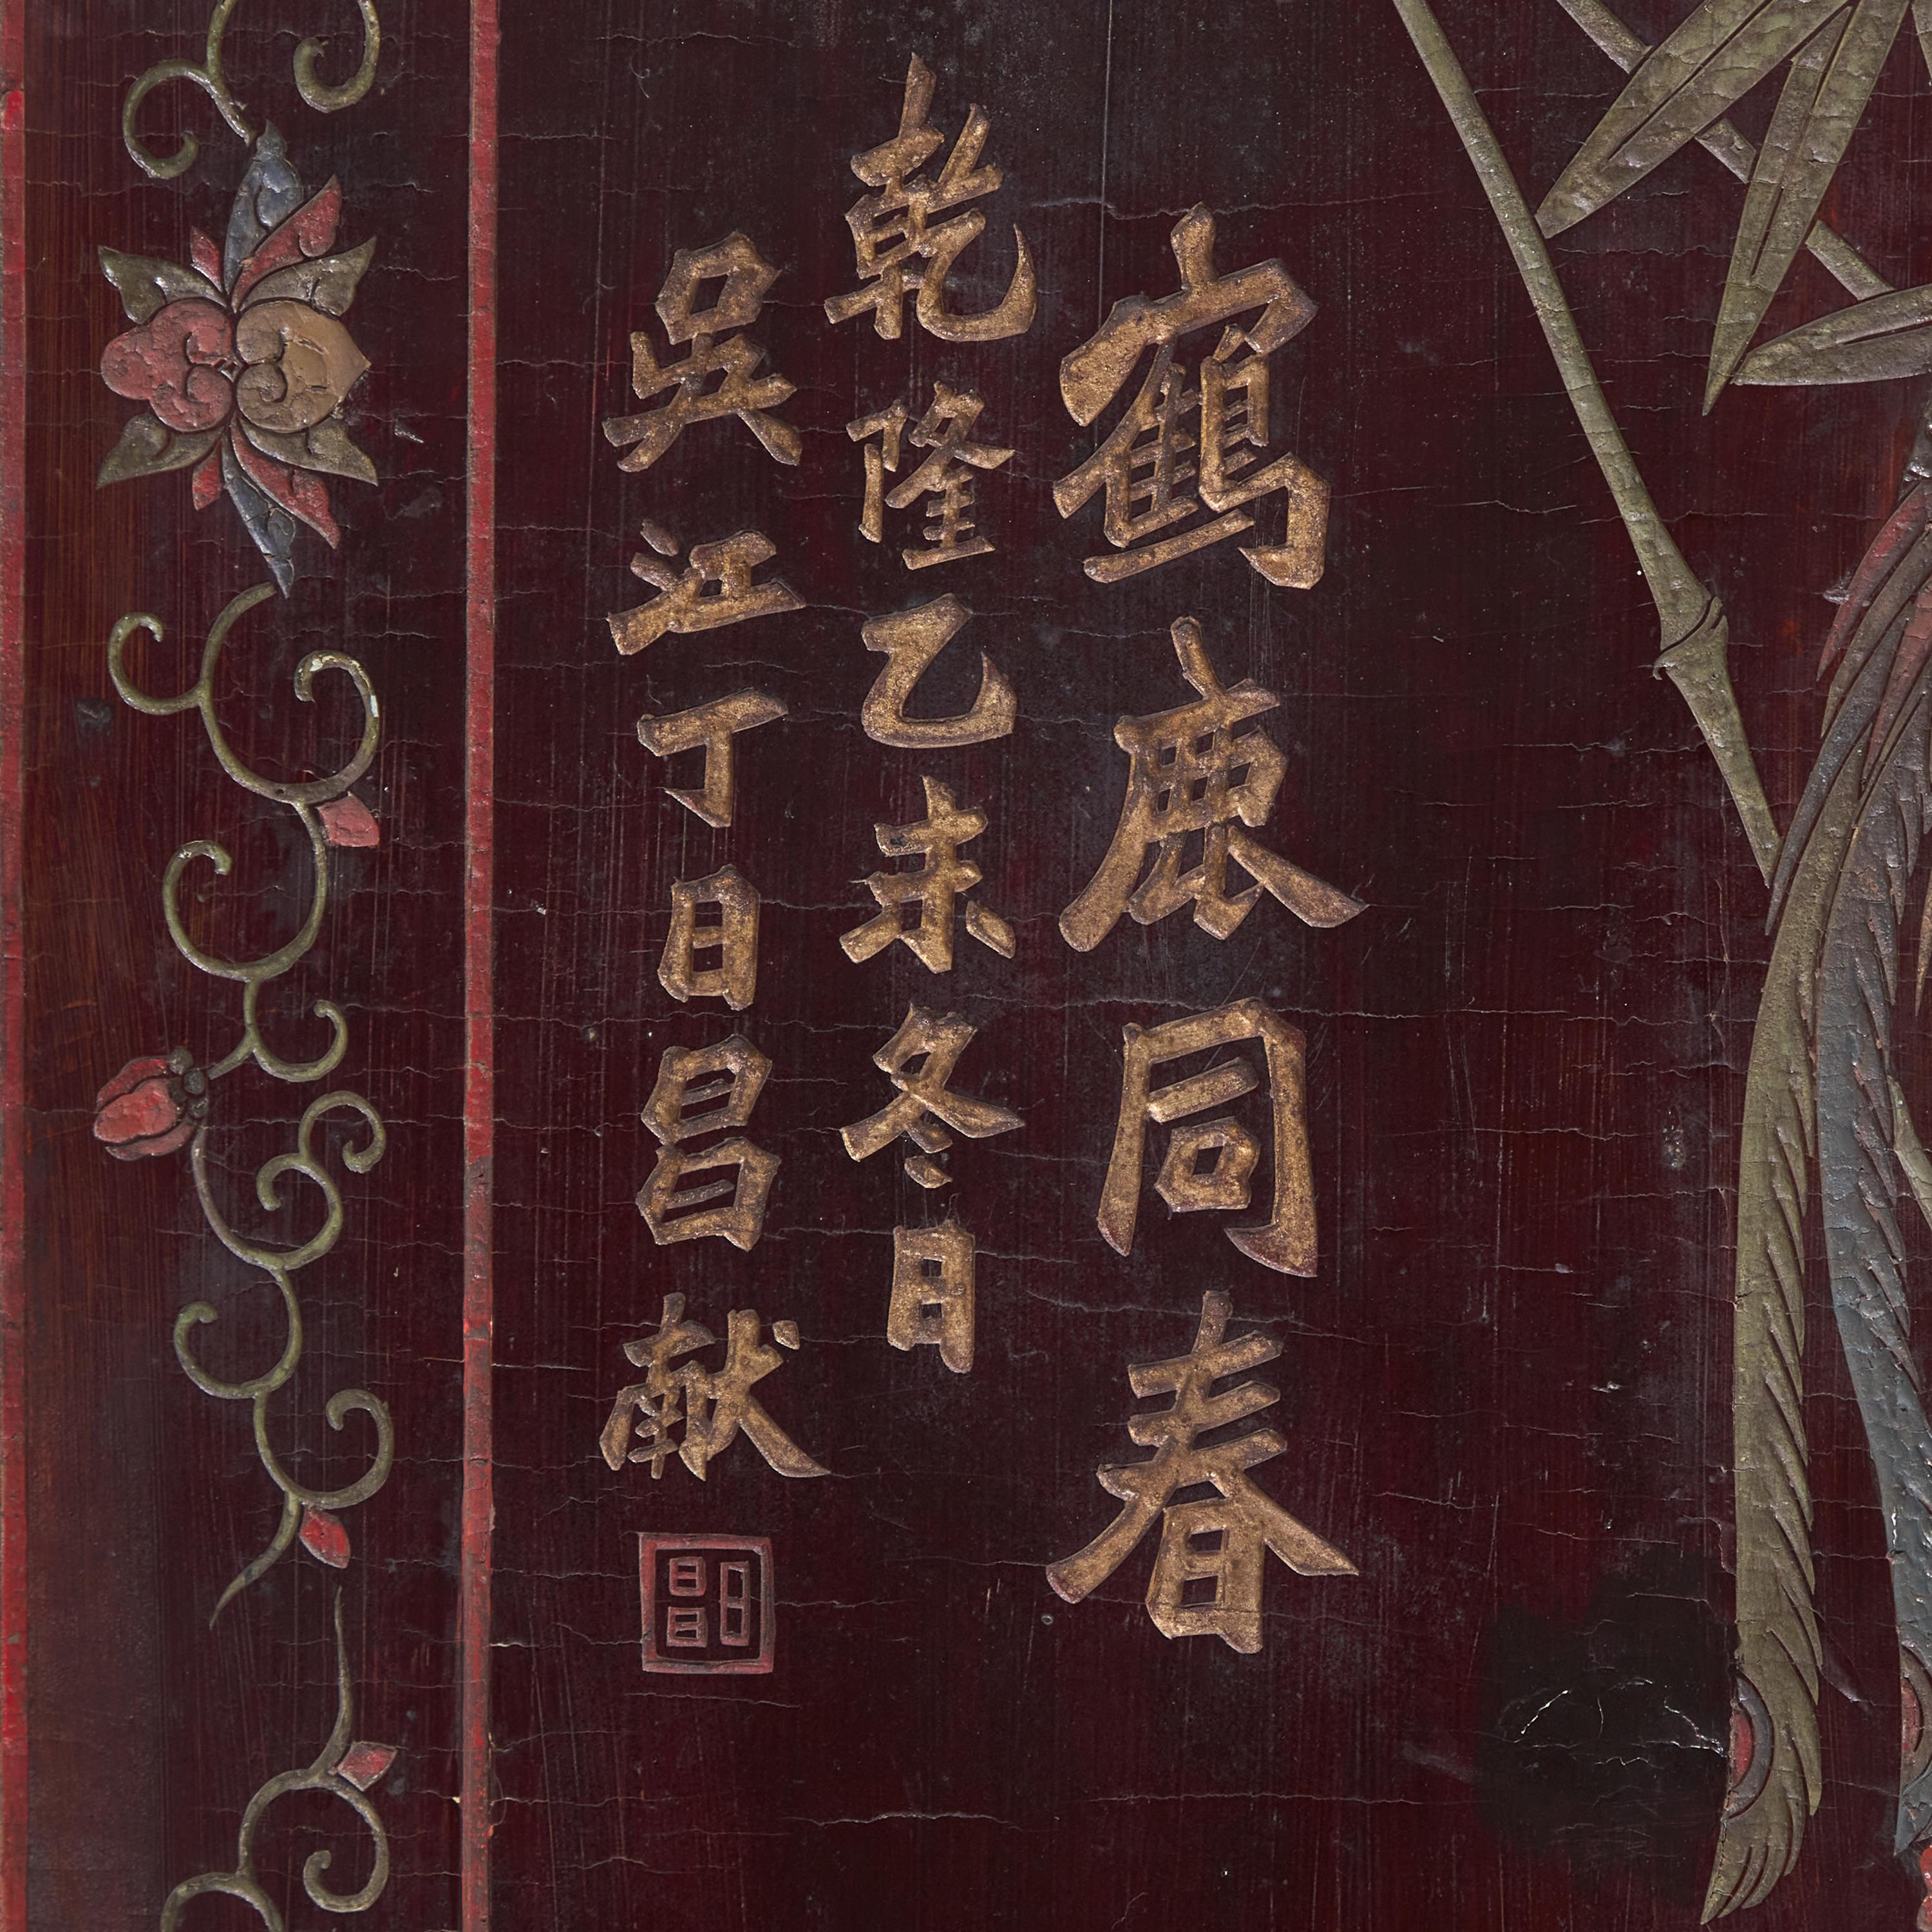 鶴鹿同春
乾隆乙未冬日
吳江丁日昌献
日昌